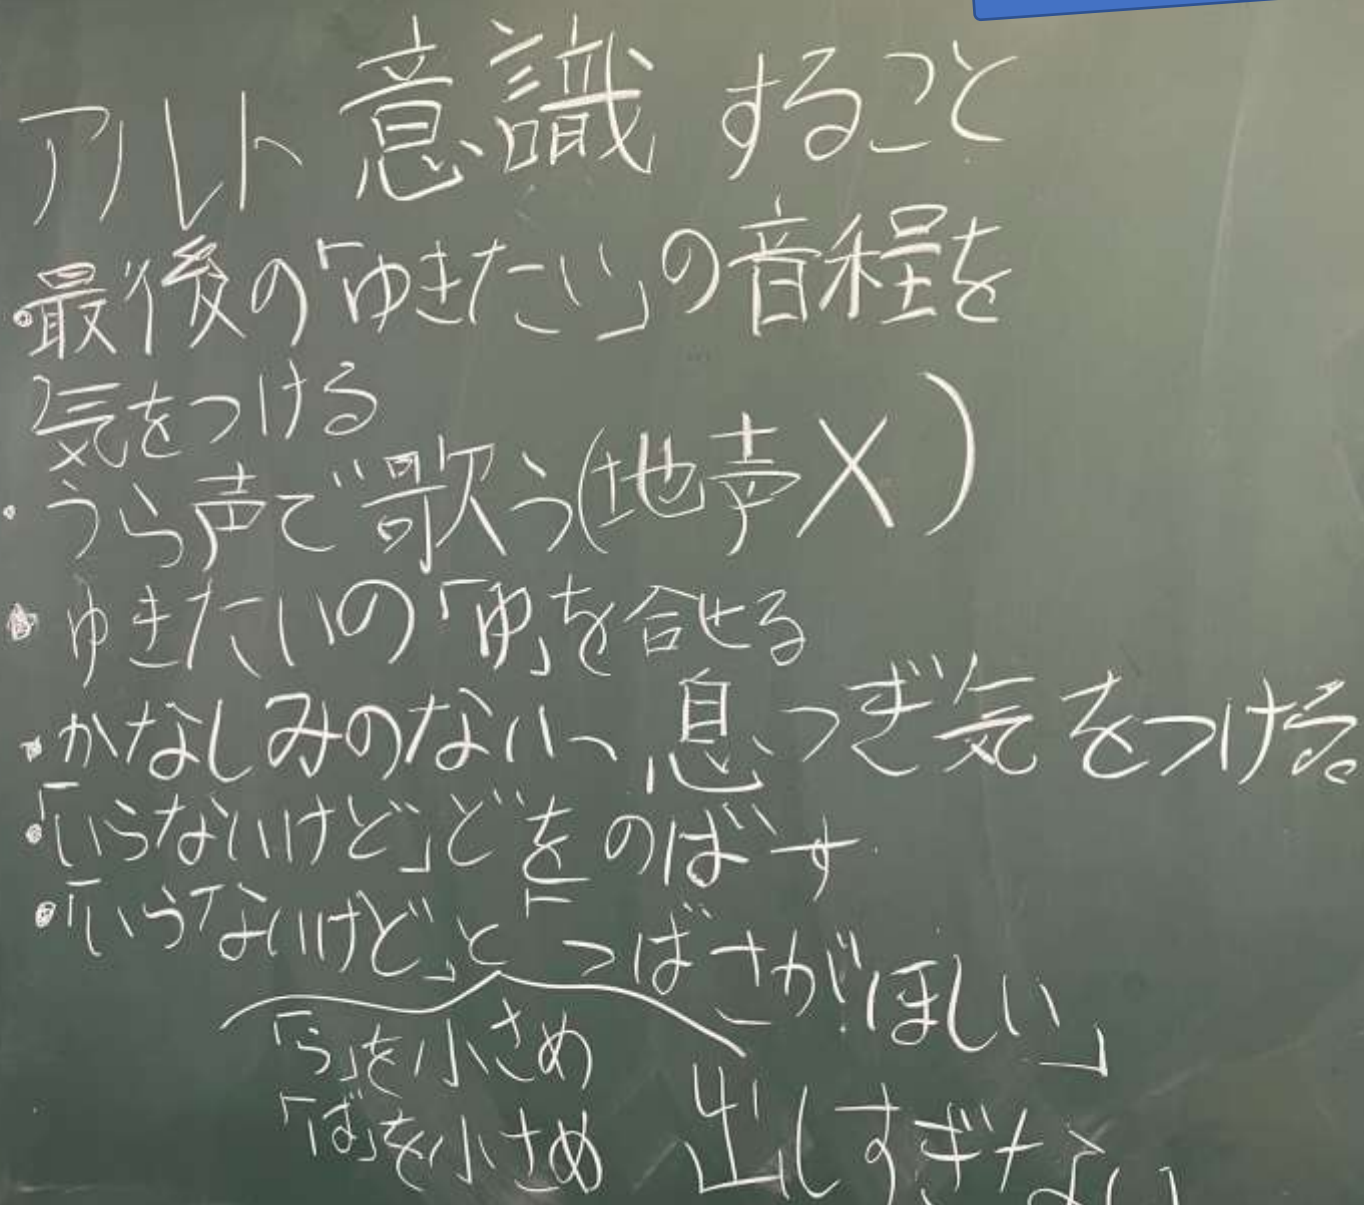 アルト意識すること
・最後の「ゆきたい」の音程を
気をつける
・うら声で歌う(地声×)
・ゆきたいの「ゆ」を合せる
・かなしみのないへ 息つぎ気をつける。
・「いらないけど」どをのばす
・「いらないけど」と「つばさがほしい」
「ら」を小さめ
「ば」を小さめ 出しすぎない